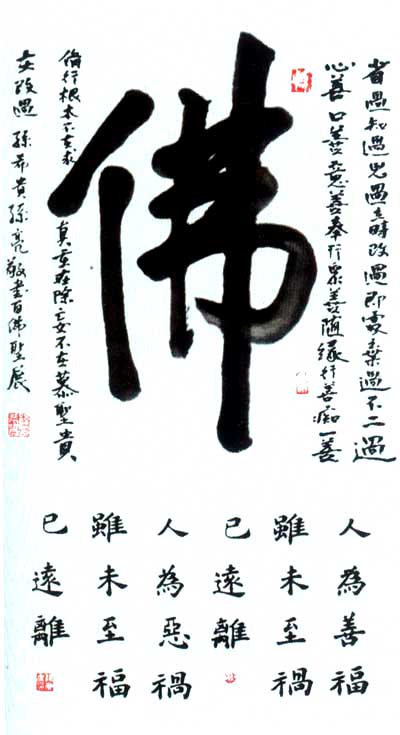 省過知過見過立時改過即棄過不二過
心善口善意善奉行眾善隨緣行善一善
佛
脩行根本不在求真重在除妄不在慕聖貴
在改過 孫希貴孫亮敬書百佛聖展
人為善福
雖未至禍
已遠離
人為惡禍
雖未至福
已遠離